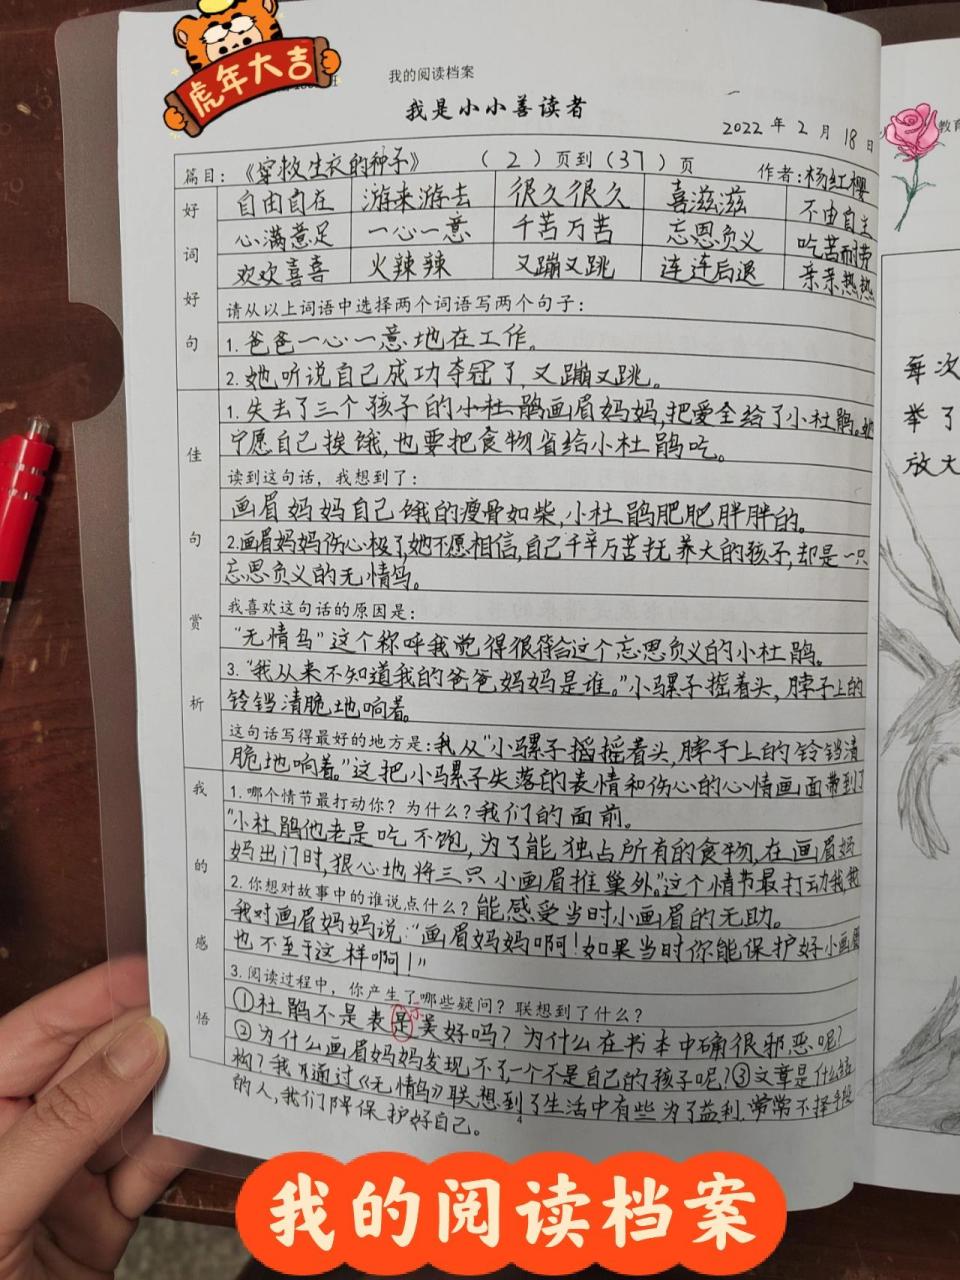 虎年大吉
我的阅读档案
我是小小善读者
2022年2月18日
教育
篇目：《穿救生衣的种子》 （2）页到（37）页 作者：杨红樱
好词好句
自由自在 游来游去 很久很久 喜滋滋 不由自主
心满意足 一心一意 千苦万苦 忘恩负义 吃苦耐劳
欢欢喜喜 火辣辣 又蹦又跳 连连后退 亲亲热热
请从以上词语中选择两个词语写两个句子：
1.爸爸一心一意地在工作。
2.她听说自己成功夺冠了，又蹦又跳。
佳句赏析
1.失去了三个孩子的小杜鹃画眉妈妈，把爱全给了小杜鹃。她
宁愿自己挨饿，也要把食物省给小杜鹃吃。
读到这句话，我想到了：
画眉妈妈自己饿的瘦骨如柴，小杜鹃肥肥胖胖的。
2.画眉妈妈伤心极了，她不愿相信，自己千辛万苦抚养大的孩子，却是一只
忘恩负义的无情鸟。
我喜欢这句话的原因是：
“无情鸟”这个称呼我觉得很符合这个忘恩负义的小杜鹃。
3.“我从来不知道我的爸爸，妈妈是谁。”小骡子摇着头，脖子上的
铃铛清脆地响着。
这句话写得最好的地方是：我从“小骡子摇摇着头，脖子上的铃铛清
脆地响着。”这把小骡子失落的表情和伤心的心情画面带到了
我的感悟
1.哪个情节最打动你？为什么？我们的面前。
“小杜鹃他老是吃不饱，为了能独占所有的食物，在画眉妈
妈出门时，狠心地将三只小画眉推巢外。”这个情节最打动我，我
2.你想对故事中的谁说点什么？能感受当时小画眉的无助。
我对画眉妈妈说：“画眉妈妈啊！如果当时你能保护好小画眉
也不至于这样啊！”
3.阅读过程中，你产生了哪些疑问？联想到了什么？
①杜鹃不是表是示美好吗？为什么在书本中确很邪恶呢？
②为什么画眉妈妈发现不了一个不是自己的孩子呢？③文章是什么结
构？我通过《无情鸟》联想到了生活中有些为了益利，常常不择手段
的人，我们降保护好自己。
4
每次
举了
放大
我的阅读档案